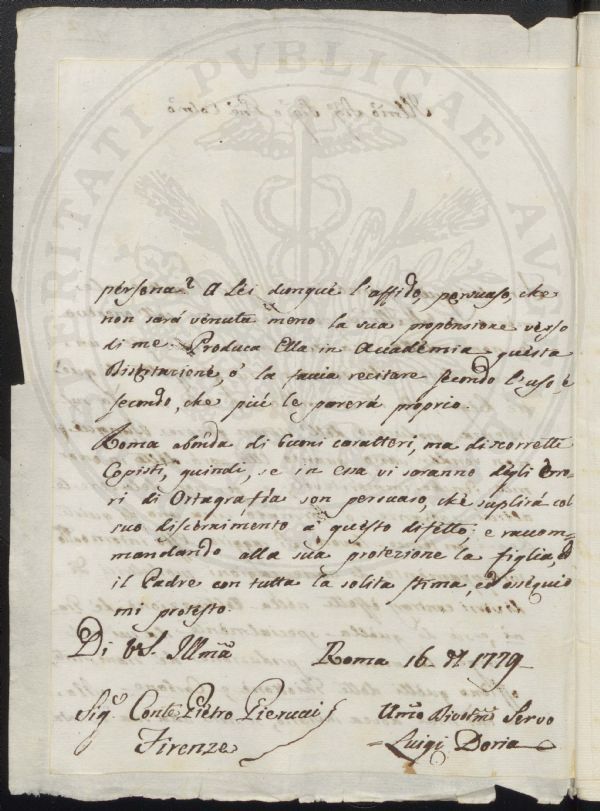 persona? A Lei dunque l'affido, persuaso, che
non sará venuta meno la sua propensione verso
di me. Produca Ella in Accademia questa
Dissertazione, e la facia recitare secondo l'uso, é
secondo, che piú le parerá proprio.
Roma abonda di buoni caratteri, ma discorretti
Copisti, quindi, se in essa vi saranno degli Erro=
ri di Ortografia son persuaso, che suplirá col
suo discernimento á questo difetto; e racom=
mandando alla sua protezione la figlia, ed
il Padre con tutta la solita stima, ed ossequio
mi protesto.
Di VS. Illmã
Roma 16 1779
Sigre Conte Pietro Pierucci
Firenze
Umo Divotmo Servo
Luigi Doria
VERITATI PUBLICAE